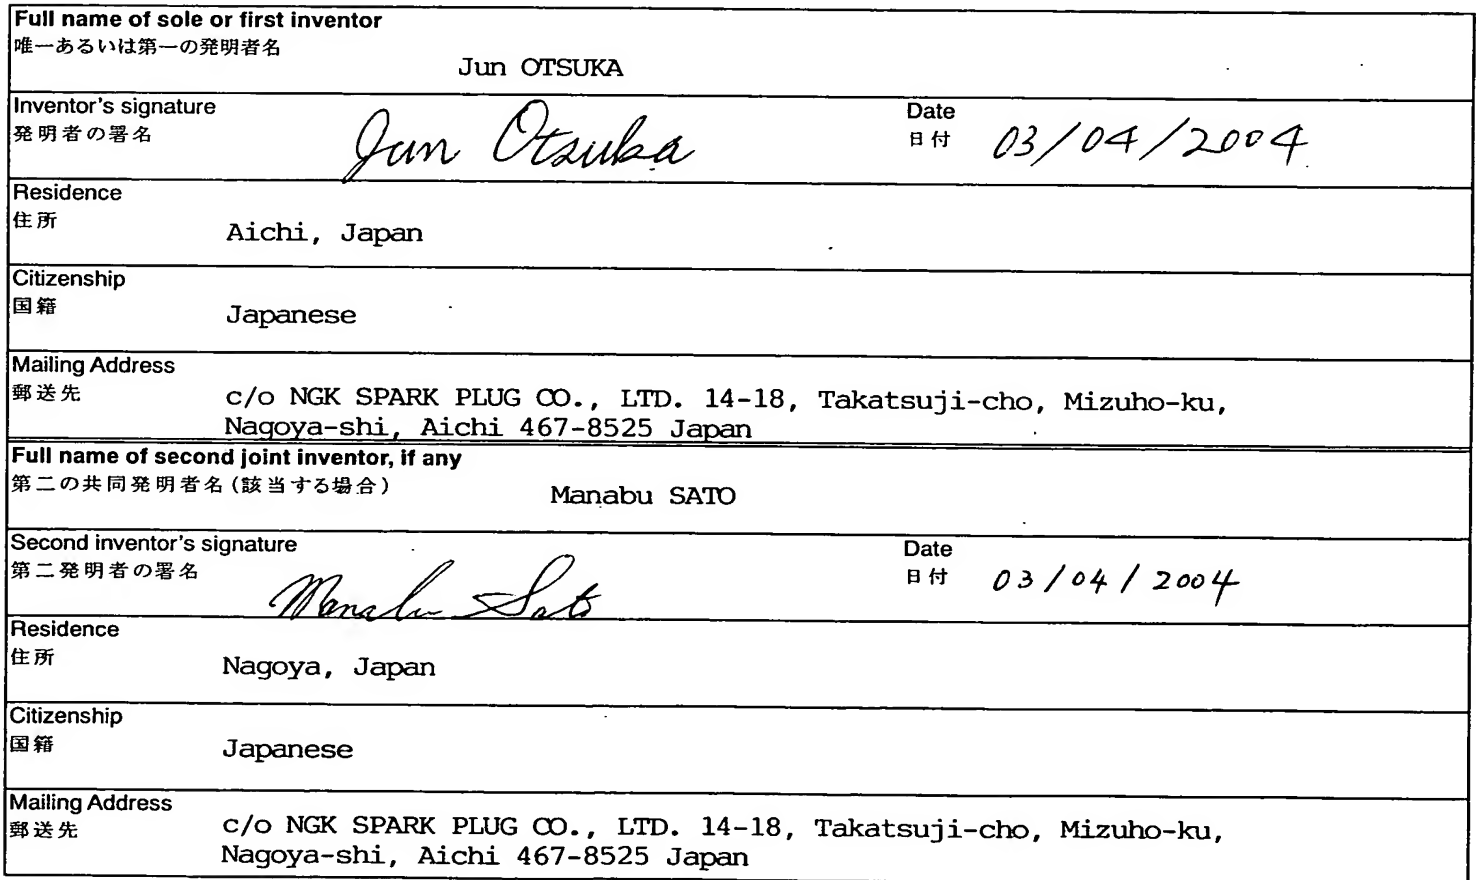 Full name of sole or first inventor
唯一あるいは第一の発明者名
Jun OTSUKA
Inventor's signature
発明者の署名
Jun Otsuka
Date
日付 03/04/2004
Residence
住所
Aichi, Japan
Citizenship
国籍
Japanese
Mailing Address
郵送先
c/o NGK SPARK PLUG CO., LTD. 14-18, Takatsuji-cho, Mizuho-ku,
Nagoya-shi, Aichi 467-8525 Japan
Full name of second joint inventor, if any
第二の共同発明者名(該当する場合)
Manabu SATO
Second inventor's signature
第二発明者の署名
Manabu Sato
Date
日付 03/04/2004
Residence
住所
Nagoya, Japan
Citizenship
国籍
Japanese
Mailing Address
郵送先
c/o NGK SPARK PLUG CO., LTD. 14-18, Takatsuji-cho, Mizuho-ku,
Nagoya-shi, Aichi 467-8525 Japan